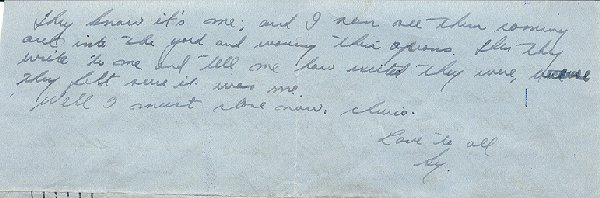 they know it's me; and I can see them coming
out into the yard and waving their aprons. Then they
write to me and tell me how excited they were, because
they felt sure it was me.
Well I must close now, cheerio.
Love to all
Sy.